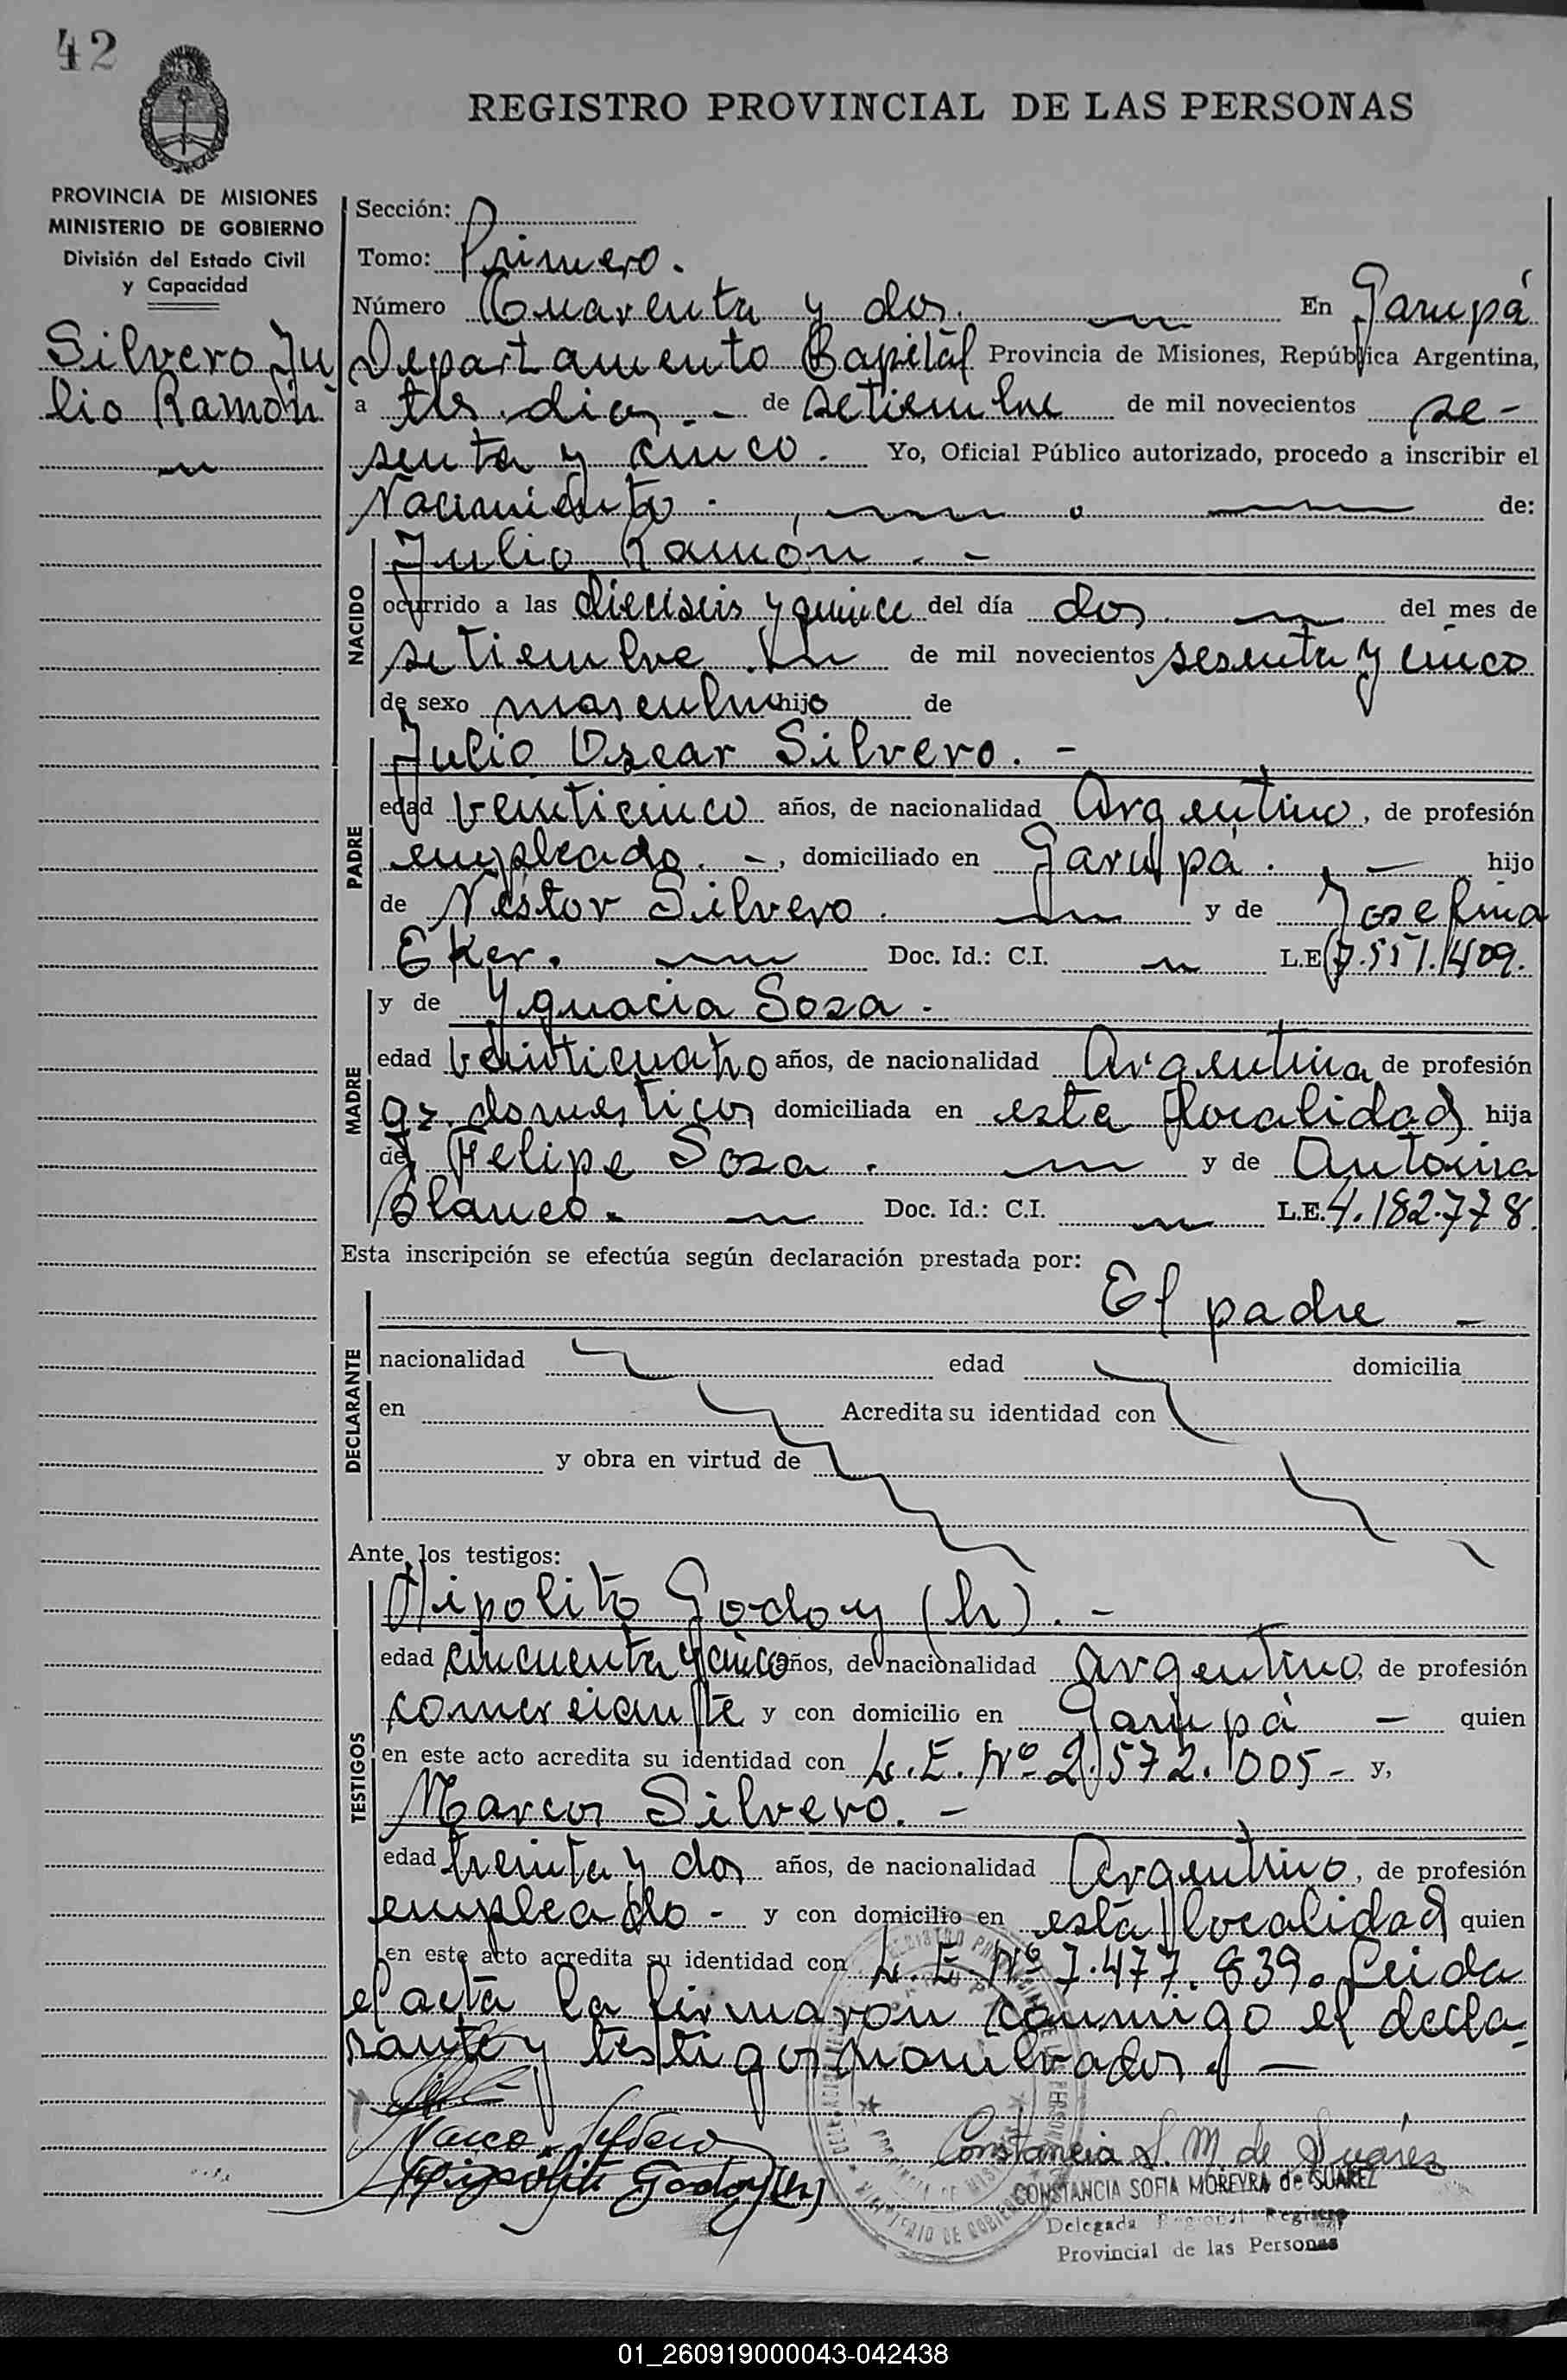 42
REGISTRO PROVINCIAL DE LAS PERSONAS
PROVINCIA DE MISIONES
MINISTERIO DE GOBIERNO
División del Estado Civil
y Capacidad
Silvero Ju
lio Ramón
Sección:
Tomo: Primero.
Número Cuarenta y dos. En Garupá
Departamento Capital Provincia de Misiones, República Argentina,
a tres dias de setiembre de mil novecientos se-
senta y cinco. Yo, Oficial Público autorizado, procedo a inscribir el
Nacimiento de:
NACIDO
Julio Ramón. -
ocurrido a las dieciseis y quince del día dos. del mes de
setiembre de mil novecientos sesenta y cinco
de sexo masculino hijo de
PADRE
Julio Oscar Silvero. -
edad veinticinco años, de nacionalidad Argentino, de profesión
empleado. -, domiciliado en Garupá. - hijo
de Néstor Silvero. y de Josefina
Eker. Doc. Id.: C.I. L.E. 7.551.409.
MADRE
y de Ygnacia Sosa.
edad veinticuatro años, de nacionalidad Argentina de profesión
qs. domesticos domiciliada en esta localidad hija
de Felipe Sosa. y de Antonia
Blanco. Doc. Id.: C.I. L.E. 4.182.778.
Esta inscripción se efectúa según declaración prestada por:
El padre -
DECLARANTE
nacionalidad edad domicilia
en Acredita su identidad con
y obra en virtud de
Ante los testigos:
TESTIGOS
Hipolito Godoy (h). -
edad cincuenta y cinco años, de nacionalidad argentino, de profesión
comerciante y con domicilio en Garupá - quien
en este acto acredita su identidad con L.E. Nº 2.572.005- y,
Marcos Silvero. -
edad treinta y dos años, de nacionalidad Argentino, de profesión
empleado - y con domicilio en esta localidad quien
en este acto acredita su identidad con L.E. Nº 7.477.839. Leida
el acta la firmaron conmigo el decla-
rante y testigos nombrados. -
Hipólito Godoy (h)
Constancia S. M. de Suárez
CONSTANCIA SOFIA MOREYRA de SUAREZ
Delegada Regional Registro
Provincial de las Personas
01_260919000043-042438